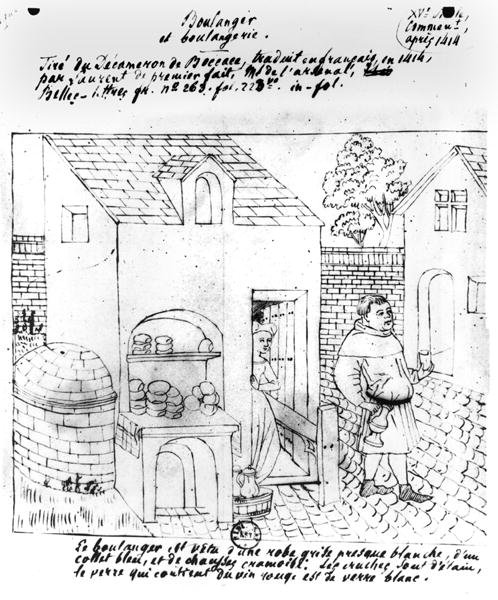 Boulanger
et boulangerie.
XVe Siècle,
Commencemt,
après 1414
Tiré du Décameron de Boccace, traduit en français, en 1414,
par Laurent de premier fait, Ms de l'arsenal,
Belles-lettres fr. no 263. fol. vo. in-fol.
Le boulanger est vêtu d'une robe grise presque blanche, d'un
collet bleu, et de chausses cramoisi. Les cruches sont d'étain,
le verre qui contient du vin rouge est de verre blanc.